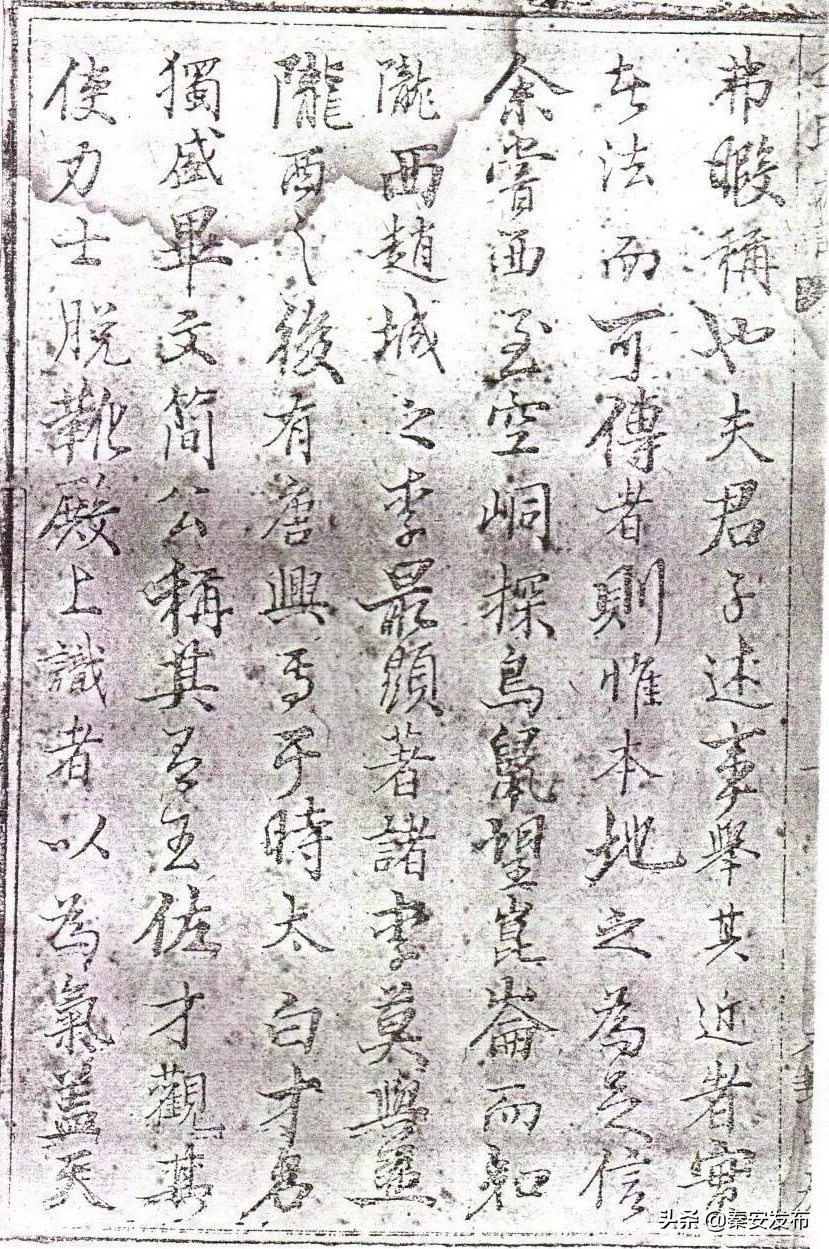 弗暇稱也夫君子述事舉其近者實
者法而可傳者則惟本地之為足信
余嘗西至空峒探鳥鼠望崑崙而知
隴西趙城之李最顯著諸李莫與並
隴西之後有唐興焉于時太白才名
獨盛畢文簡公稱其有王佐才觀其
使力士脱靴殿上識者以為氣蓋天
头条 @秦安发布